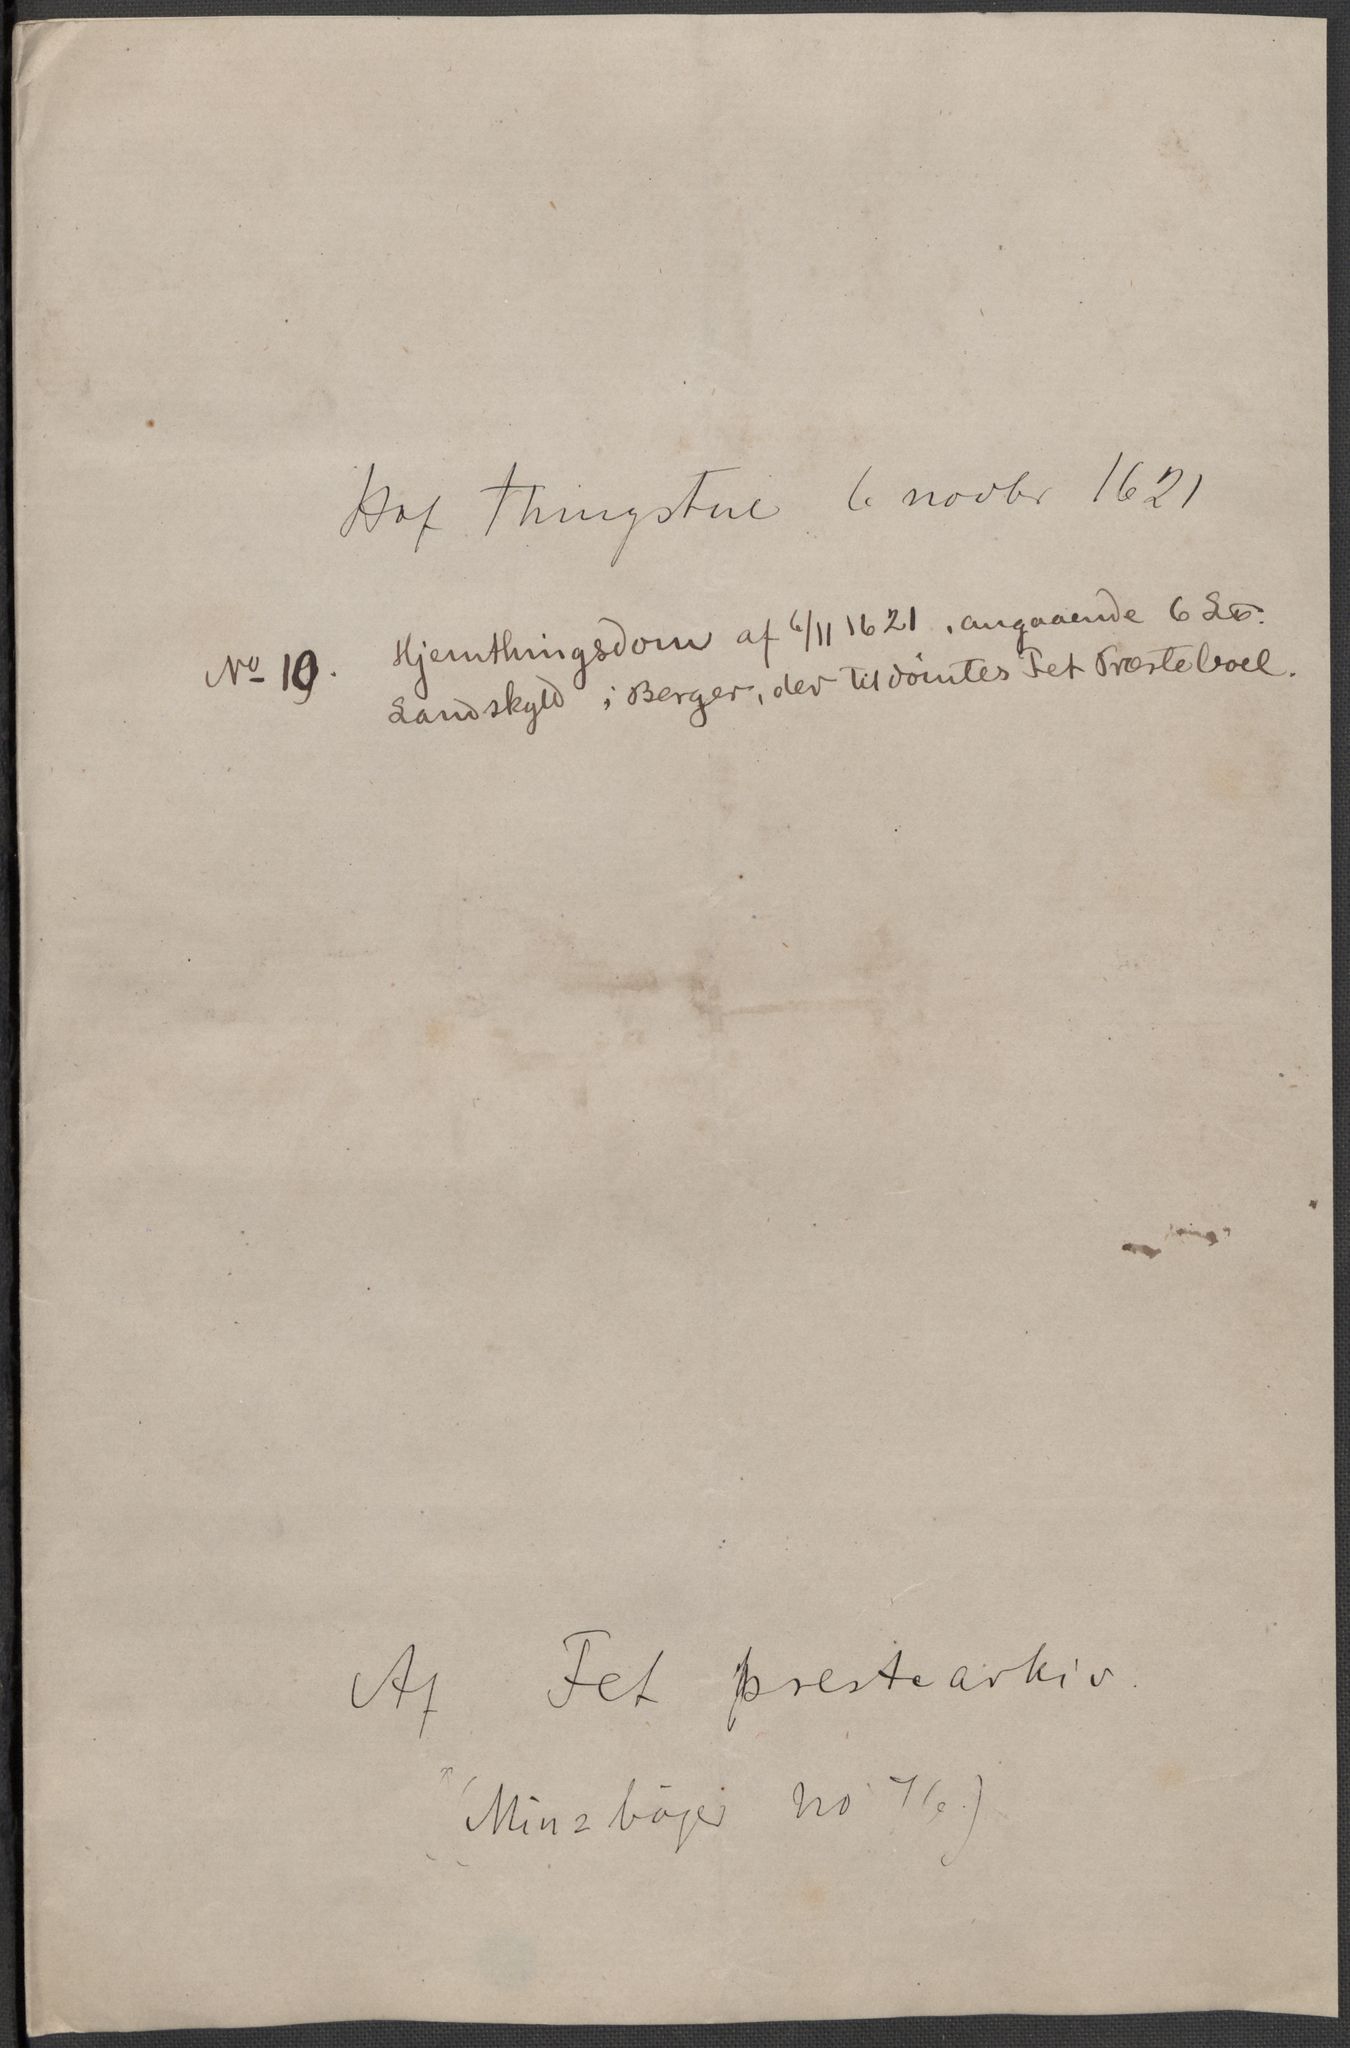 Hof thingstue 6 novbr 1621
No 19. Hjemthingsdom af 6/11 1621, angaaende 6 L℔.
Landskyld i Berger, der tildömtes Fet Præsteboel.
Af Fet prestearkiv.